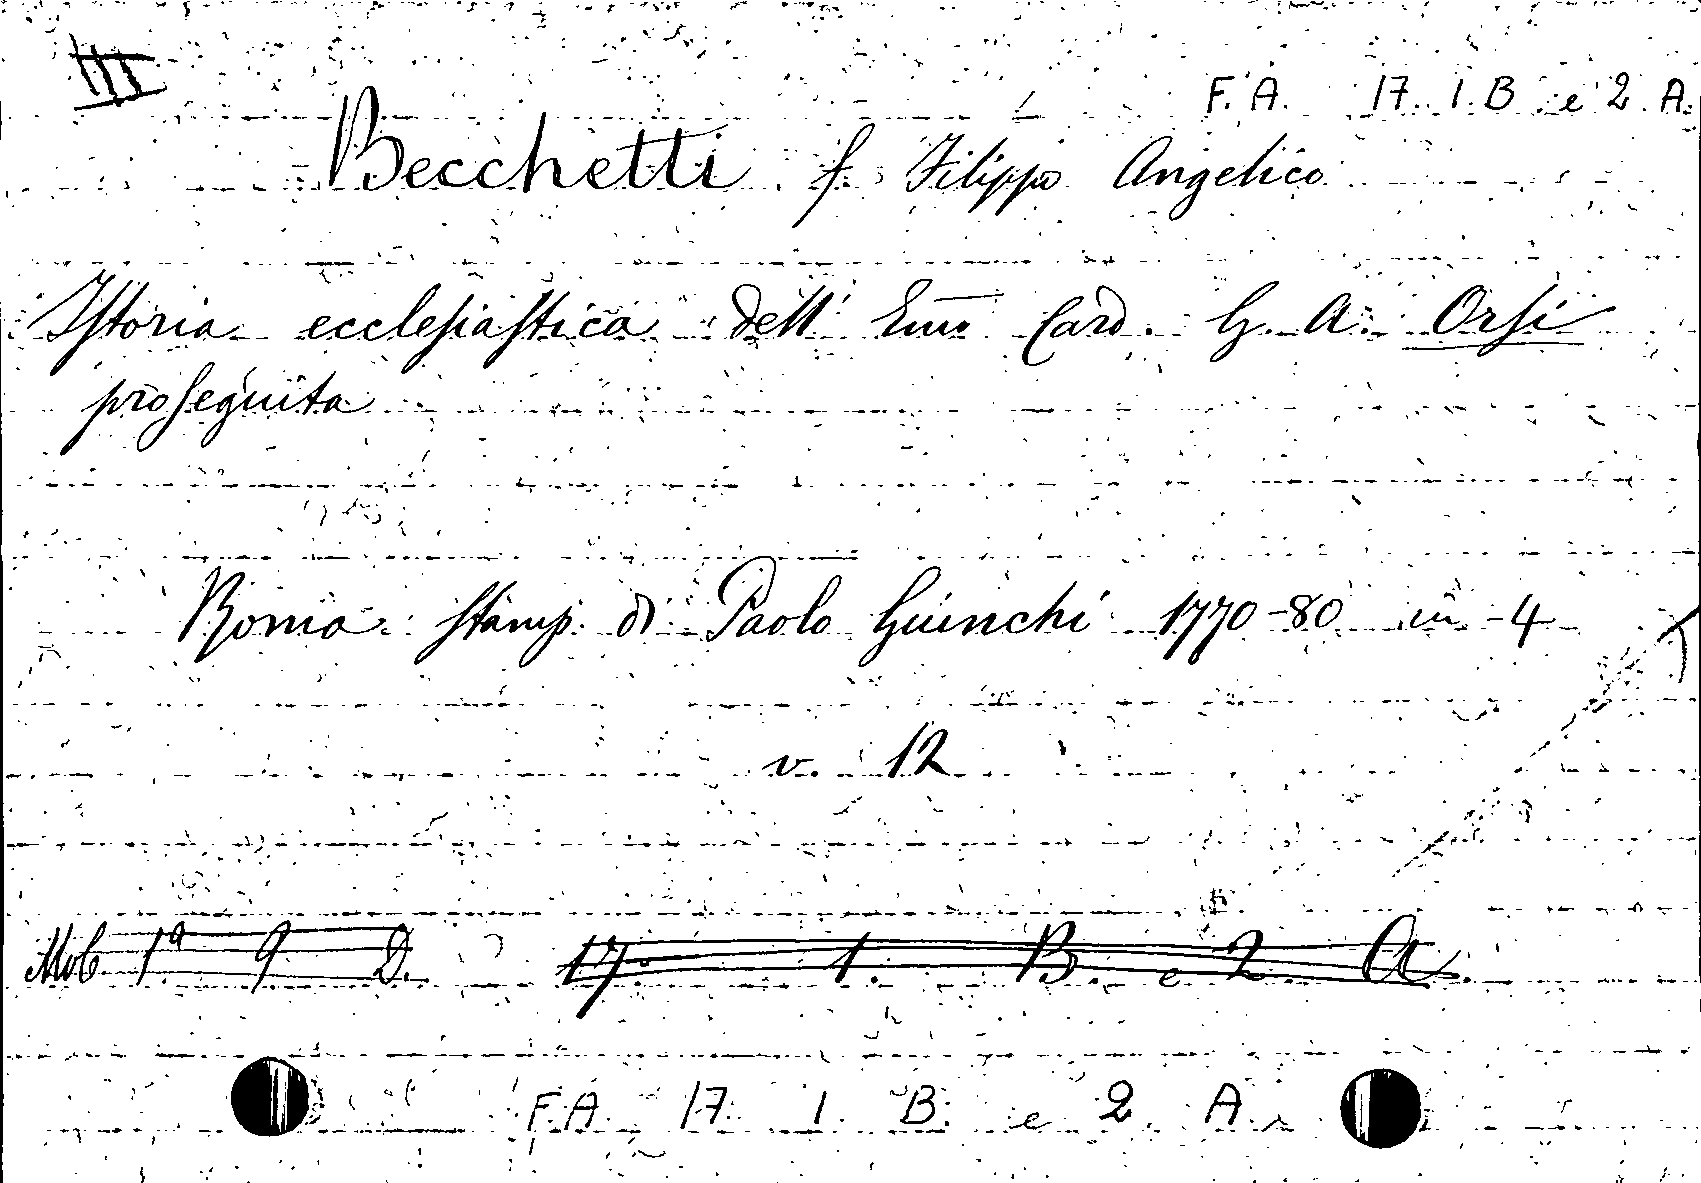 III
F. A. 17. 1. B e 2. A.
Becchetti f. Filippo Angelico
Istoria ecclesiastica dell' Emo Card. G. A. Orsi
proseguita
Roma stamp. di Paolo Giunchi 1770-80 in-4
v. 12
Mob 1ª 9 D. 17. 1. B. e 2 A.
F.A. 17. 1. B. e 2. A.